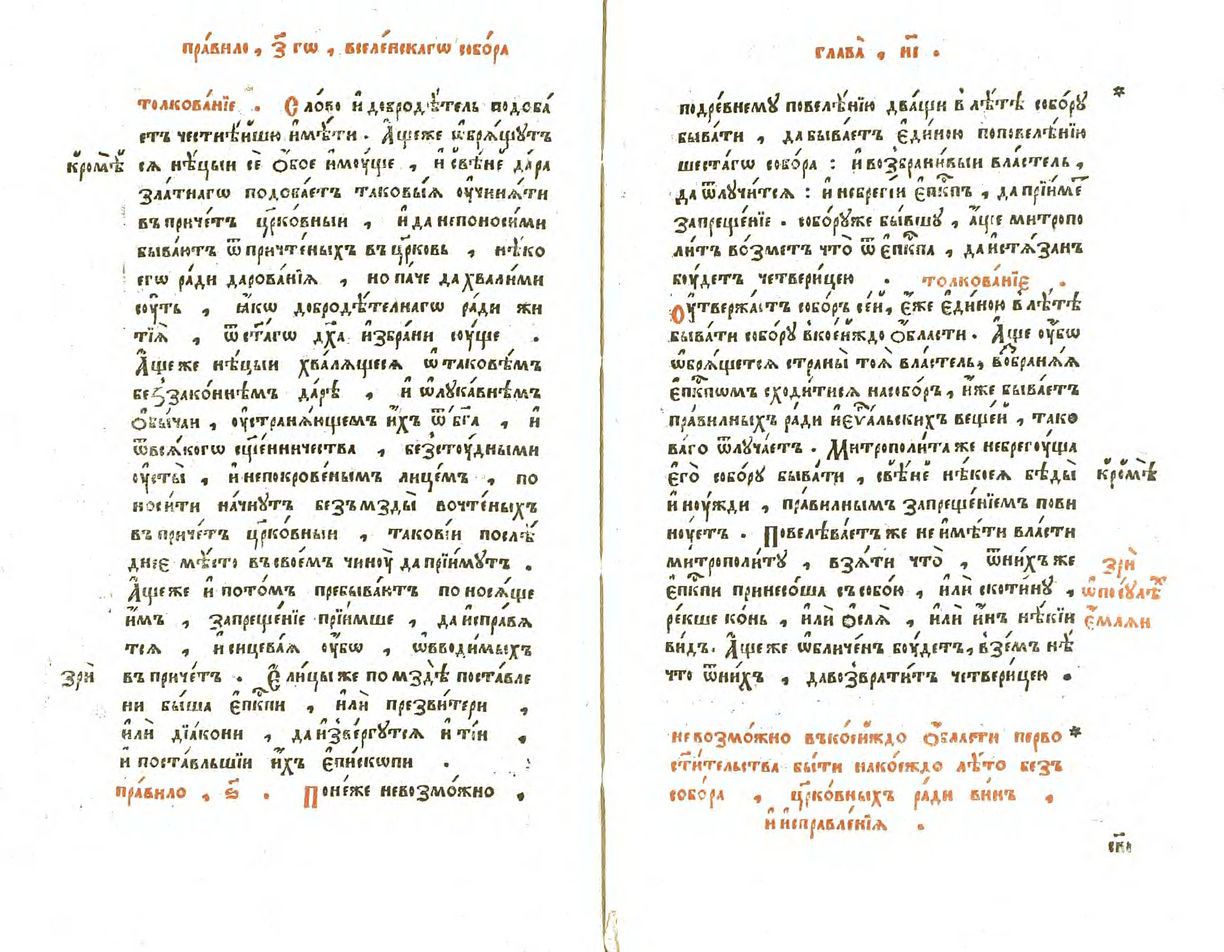 пра́вило , з҃ гѡ , вселе́нскагѡ собо́ра
толкова́нїе . Сло́во и҆ доброд҄ѣтель подоба́
етъ честнѣ́йшю и҆мѣ́ти . А҆́щеже ѡ҆брѧ́щутъ
кро́мѣ сѧ нѣ́цыи сѐ ѻ҆бое и҆мꙋще , и҆ свѣ́не да́ра
зла́тнагѡ подоба́етъ таковы́ѧ оу҆чинѧ́ти
въ приче́тъ цр҃ко́вныи , и҆ да непоноси́ми
быва́ютъ ѿ причте́ныхъ въ цр҃ковь , нѣ́ко
егѡ ра́ди дарова́нїѧ , но па́че да хвали́ми
сꙋ́ть , ꙗ҆́кѡ добродѣ́телнагѡ ра́ди жи
тїѧ̀ , ѿ ст҃а́гѡ дх҃а и҆збра́ни сꙋ́ще .
А҆́ще же нѣ́цыи хвалѧ́щесѧ ѡ҆ таковѣ́мъ
беззако́ннѣмъ да́рѣ , и҆ ѡ҆ лука́внѣмъ
ѻ҆бы́чаи , оу҆странѧ́ющемъ и҆́хъ ѿ бг҃а , и҆
ѿ всѧ́когѡ сщ҃е́нничества , безстꙋ́дными
оу҆сты̀ , и҆ непокрове́нымъ лице́мъ , по
носи́ти на́чнутъ безъ мзды̀ вочте́ныхъ
въ приче́тъ цр҃ко́вныи , таковїи послѣ́
днее мѣ́сто въ свое́мъ чинꙋ̀ да прїи́мутъ .
А҆́ще же и҆ пото́мъ пребыва́ютъ поносѧ́ще
и҆̀мъ , запреще́нїе прїи́мше , да и҆спра́вѧ
тсѧ , и҆ сицева́ѧ оу҆́бѡ , ѡ҆ вводи́мыхъ
зрѝ въ приче́тъ . Е҆ли́цы же по мздѣ̀ поста́вле
ни бы́ша е҆пк҃пи , и҆лѝ презви́тери ,
и҆лѝ дїа́кони , да и҆зве́ргутсѧ и҆ ті́и ,
и҆ поста́вльшїи и҆́хъ е҆пи́скопи .
пра́вило , ѕ҃ . Поне́же невозмо́жно ,
глава̀ , н҃і .
подре́внему повелѣ́нїю два́щи в лѣ́тѣ собо́ру *
быва́ти , да быва́етъ є҆ди́ною по повелѣ́нїю
шеста́гѡ собо́ра : и҆ возбрани́выи вла́стель ,
да ѿлучи́тсѧ : и҆ небреги́и е҆пк҃пъ , да прїи́ме
запреще́нїе . собо́руже бы́вшу , а҆́ще митропо
ли́тъ во́зметъ что̀ ѿ е҆пк҃па , да и҆стѧ́занъ
бꙋ́детъ четвери́цею . толкова́нїе .
Оу҆твержа́етъ собо́ръ се́й , є҆́же є҆ди́ною в лѣ́тѣ
быва́ти собо́ру в коейждо ѻ҆́бласти . А҆́ще оу҆́бѡ
ѡ҆брѧ́щетсѧ страны̀ тоѧ̀ вла́стель , возбранѧ́ѧ
е҆пк҃пѡмъ сходи́тисѧ на собо́ръ , и҆́же быва́етъ
пра́вилныхъ ра́ди и҆ е҆ѵ҃а́льскихъ веще́й , тако
ва́го ѿлуча́етъ . Митрополи́та же небрегꙋ́ща
є҆го̀ собо́ру быва́ти , свѣ́не нѣ́коеѧ бѣды̀ кро́мѣ
и҆ нꙋ́жди , пра́вилнымъ запреще́нїемъ пови
нꙋ́етъ . Повелѣва́етъ же не и҆мѣ́ти вла́сти
митрополи́ту , взѧ́ти что̀ , ѿ ни́хъ же
зрѝ
е҆пк҃пи принесо́ша съ собо́ю , и҆лѝ скоти́ну ,
ѡ҆ посу́лѣхъ
ре́кше ко́нь , и҆лѝ ѻ҆слѧ̀ , и҆лѝ и҆́нъ нѣ́кїи
є҆́млѧи
ви́дъ . А҆́ще же ѡ҆бличе́нъ бꙋ́детъ , взе́мъ нѣ́
что ѿ ни́хъ , да возврати́тъ четвери́цею .
невозмо́жно въ коейждо ѻ҆́бласти перво *
ст҃и́тельства бы́ти на ко́еждо лѣ́то безъ
собо́ра , цр҃ко́вныхъ ра́ди ви́нъ ,
и҆ и҆справле́нїѧ .